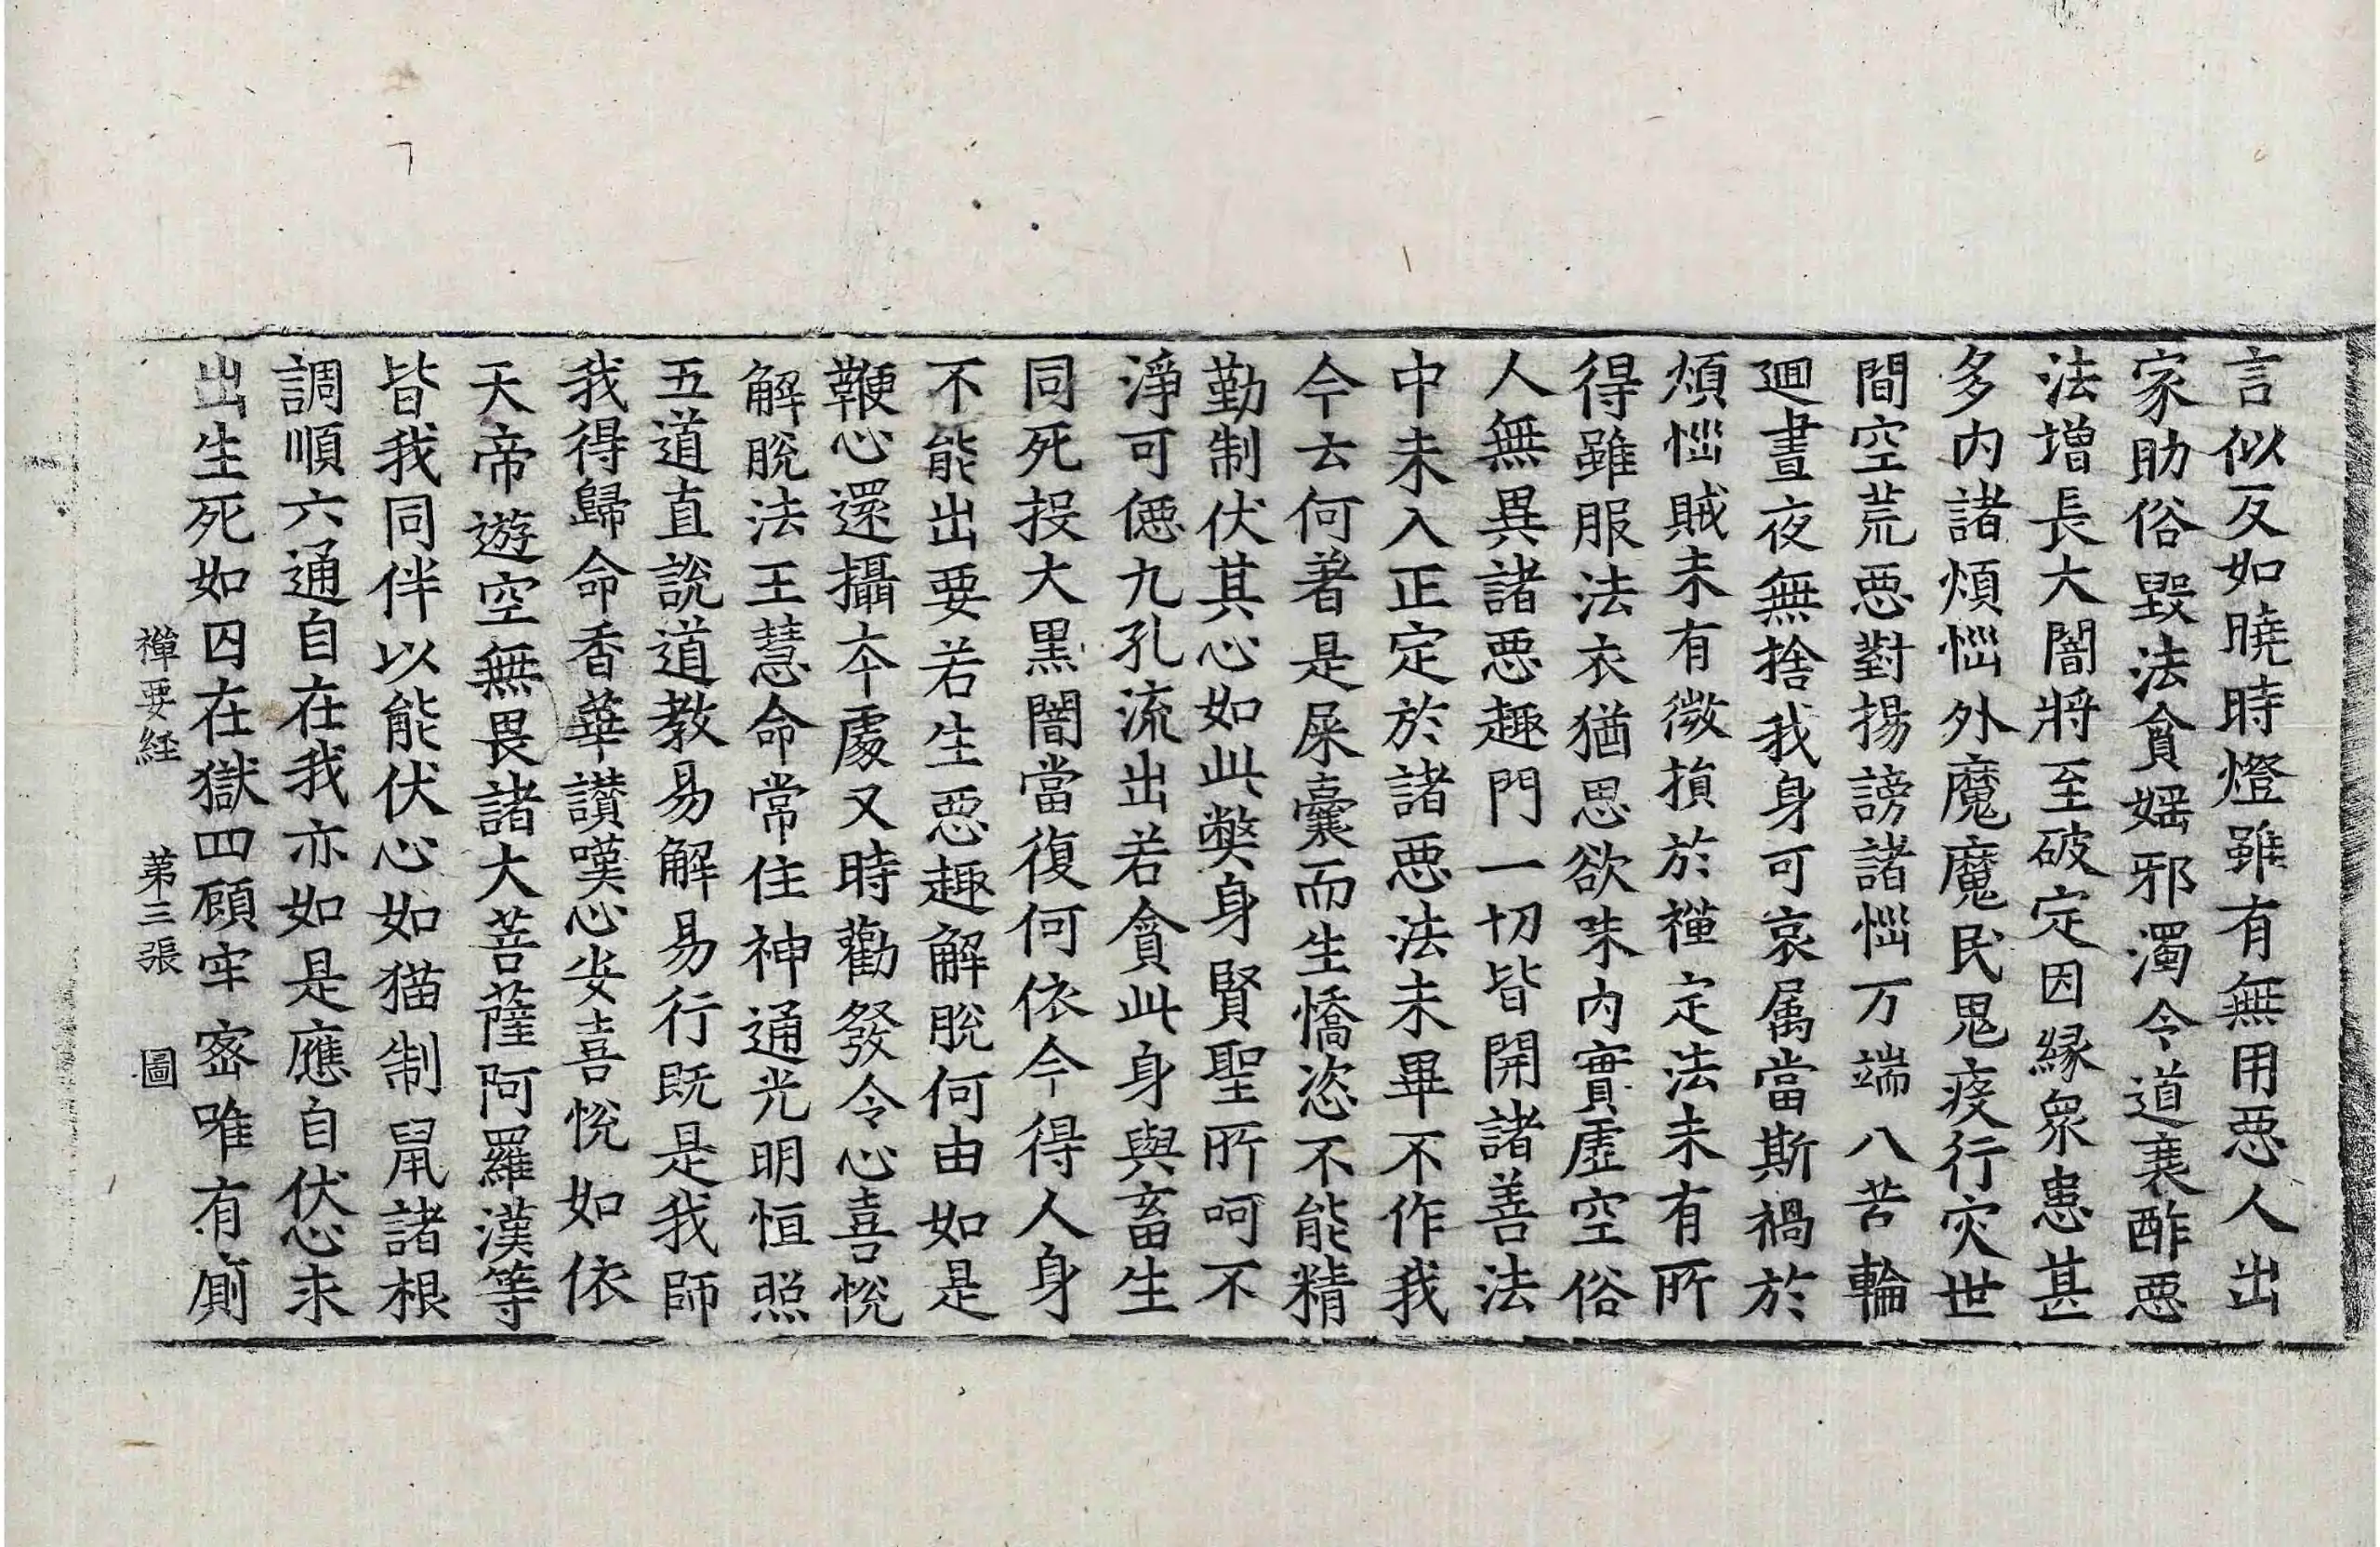 言似反如曉時燈雖有無用惡人出
家助俗毀法貪婬邪濁令道衰酢惡
法增長大闇將至破定因緣衆患甚
多內諸煩惱外魔魔民鬼疫行灾世
間空荒惡對揚謗諸惱万端八苦輪
迴晝夜無捨我身可哀属當斯禍於
煩惱賊未有微損於禪定法未有所
得雖服法衣猶思欲味內實虛空俗
人無異諸惡趣門一切皆開諸善法
中未入正定於諸惡法未畢不作我
今云何著是屎囊而生憍恣不能精
勤制伏其心如此弊身賢聖所呵不
淨可惡九孔流出若貪此身與畜生
同死投大黑闇當復何依今得人身
不能出要若生惡趣解脫何由如是
鞭心還攝本處又時勸發令心喜悅
解脫法王慧命常住神通光明恒照
五道直說道教易解易行既是我師
我得歸命香華讃嘆心安喜悅如依
天帝遊空無畏諸大菩薩阿羅漢等
皆我同伴以能伏心如猫制鼠諸根
調順六通自在我亦如是應自伏心求
出生死如囚在獄四顧牢密唯有廁
禪要経 第三張 圖